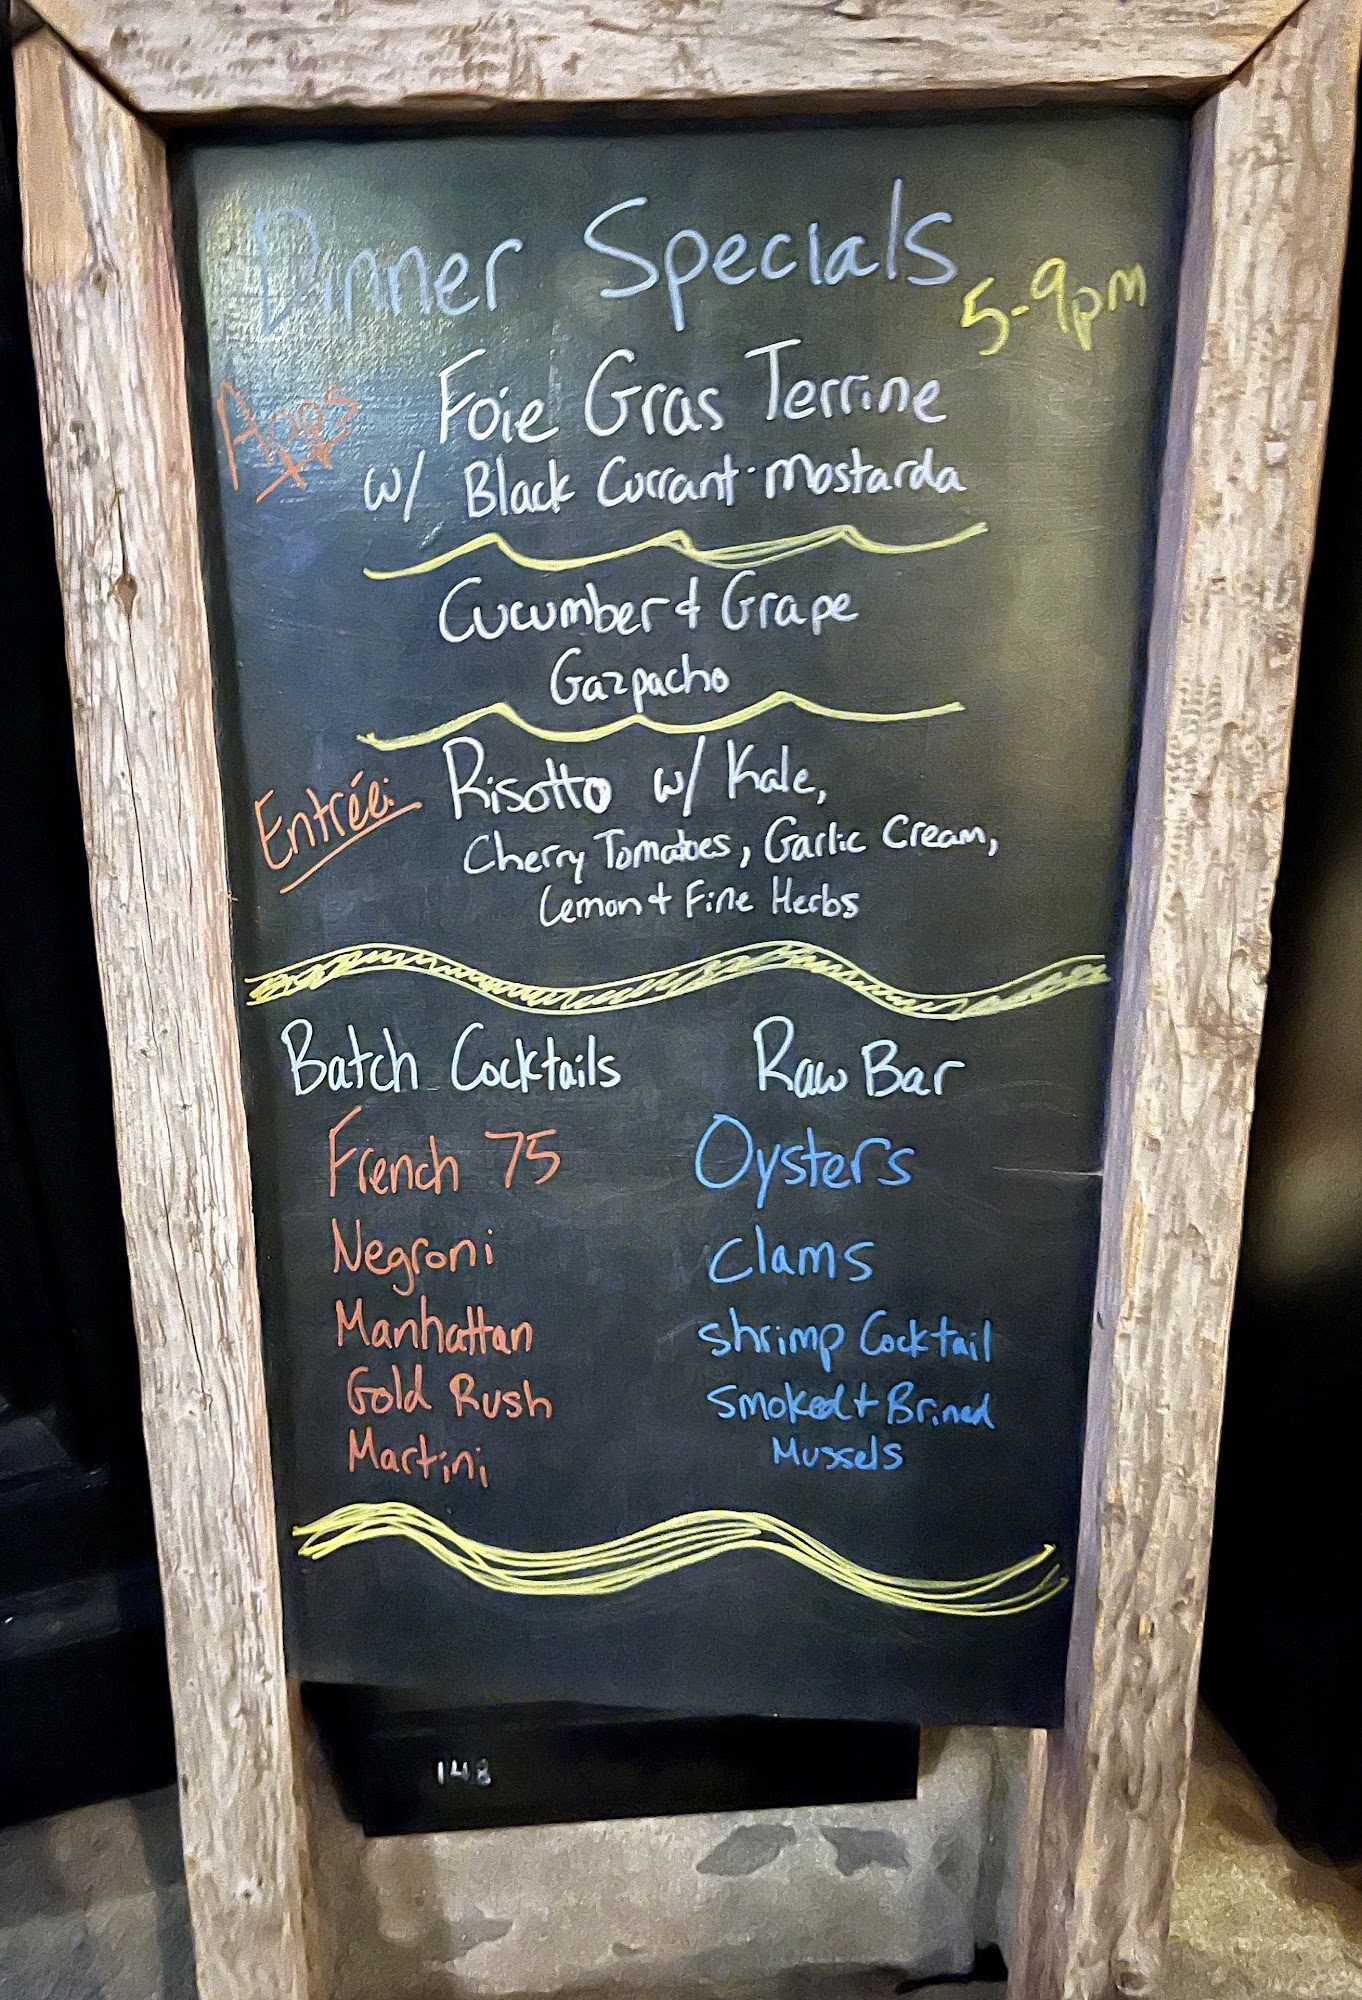 Dinner Specials
5-9pm
Apps
Foie Gras Terrine
w/ Black Currant Mostarda
Cucumber & Grape
Gazpacho
Entrée:
Risotto w/ Kale,
Cherry Tomatoes, Garlic Cream,
Lemon + Fine Herbs
Batch Cocktails
French 75
Negroni
Manhattan
Gold Rush
Martini
Raw Bar
Oysters
Clams
Shrimp Cocktail
Smoked + Brined
Mussels
148